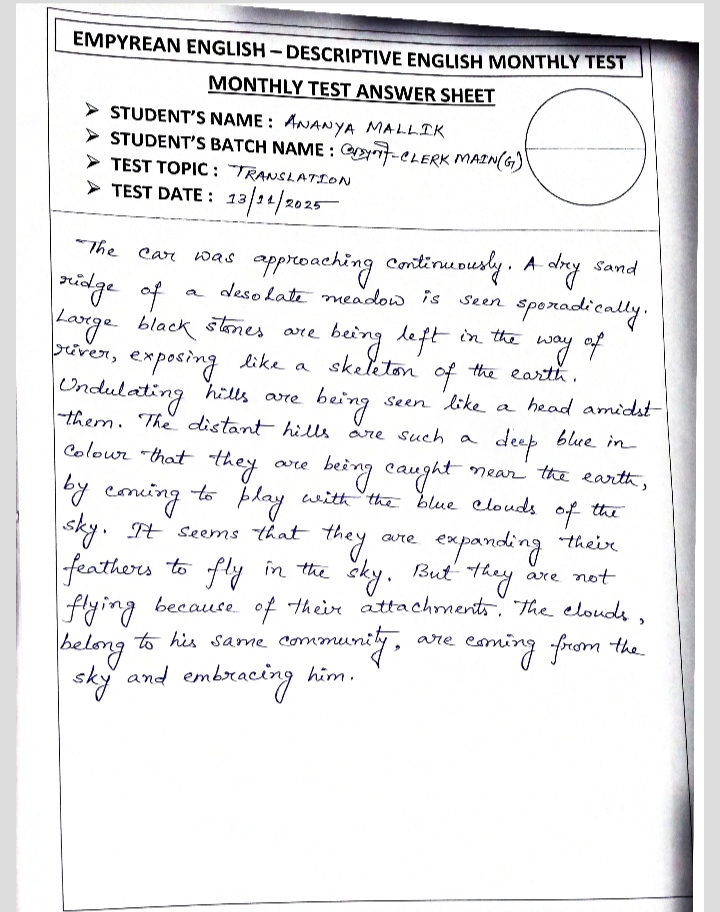 EMPYREAN ENGLISH – DESCRIPTIVE ENGLISH MONTHLY TEST
MONTHLY TEST ANSWER SHEET
➤ STUDENT'S NAME : ANANYA MALLIK
➤ STUDENT'S BATCH NAME : -CLERK MAIN(G)
➤ TEST TOPIC : TRANSLATION
➤ TEST DATE : 13/11/2025
The car was approaching continuously. A dry sand
ridge of a desolate meadow is seen sporadically.
Large black stones are being left in the way of
river, exposing like a skeleton of the earth.
Undulating hills are being seen like a head amidst
them. The distant hills are such a deep blue in
colour that they are being caught near the earth,
by coming to play with the blue clouds of the
sky. It seems that they are expanding their
feathers to fly in the sky. But they are not
flying because of their attachments. The clouds,
belong to his same community, are coming from the
sky and embracing him.